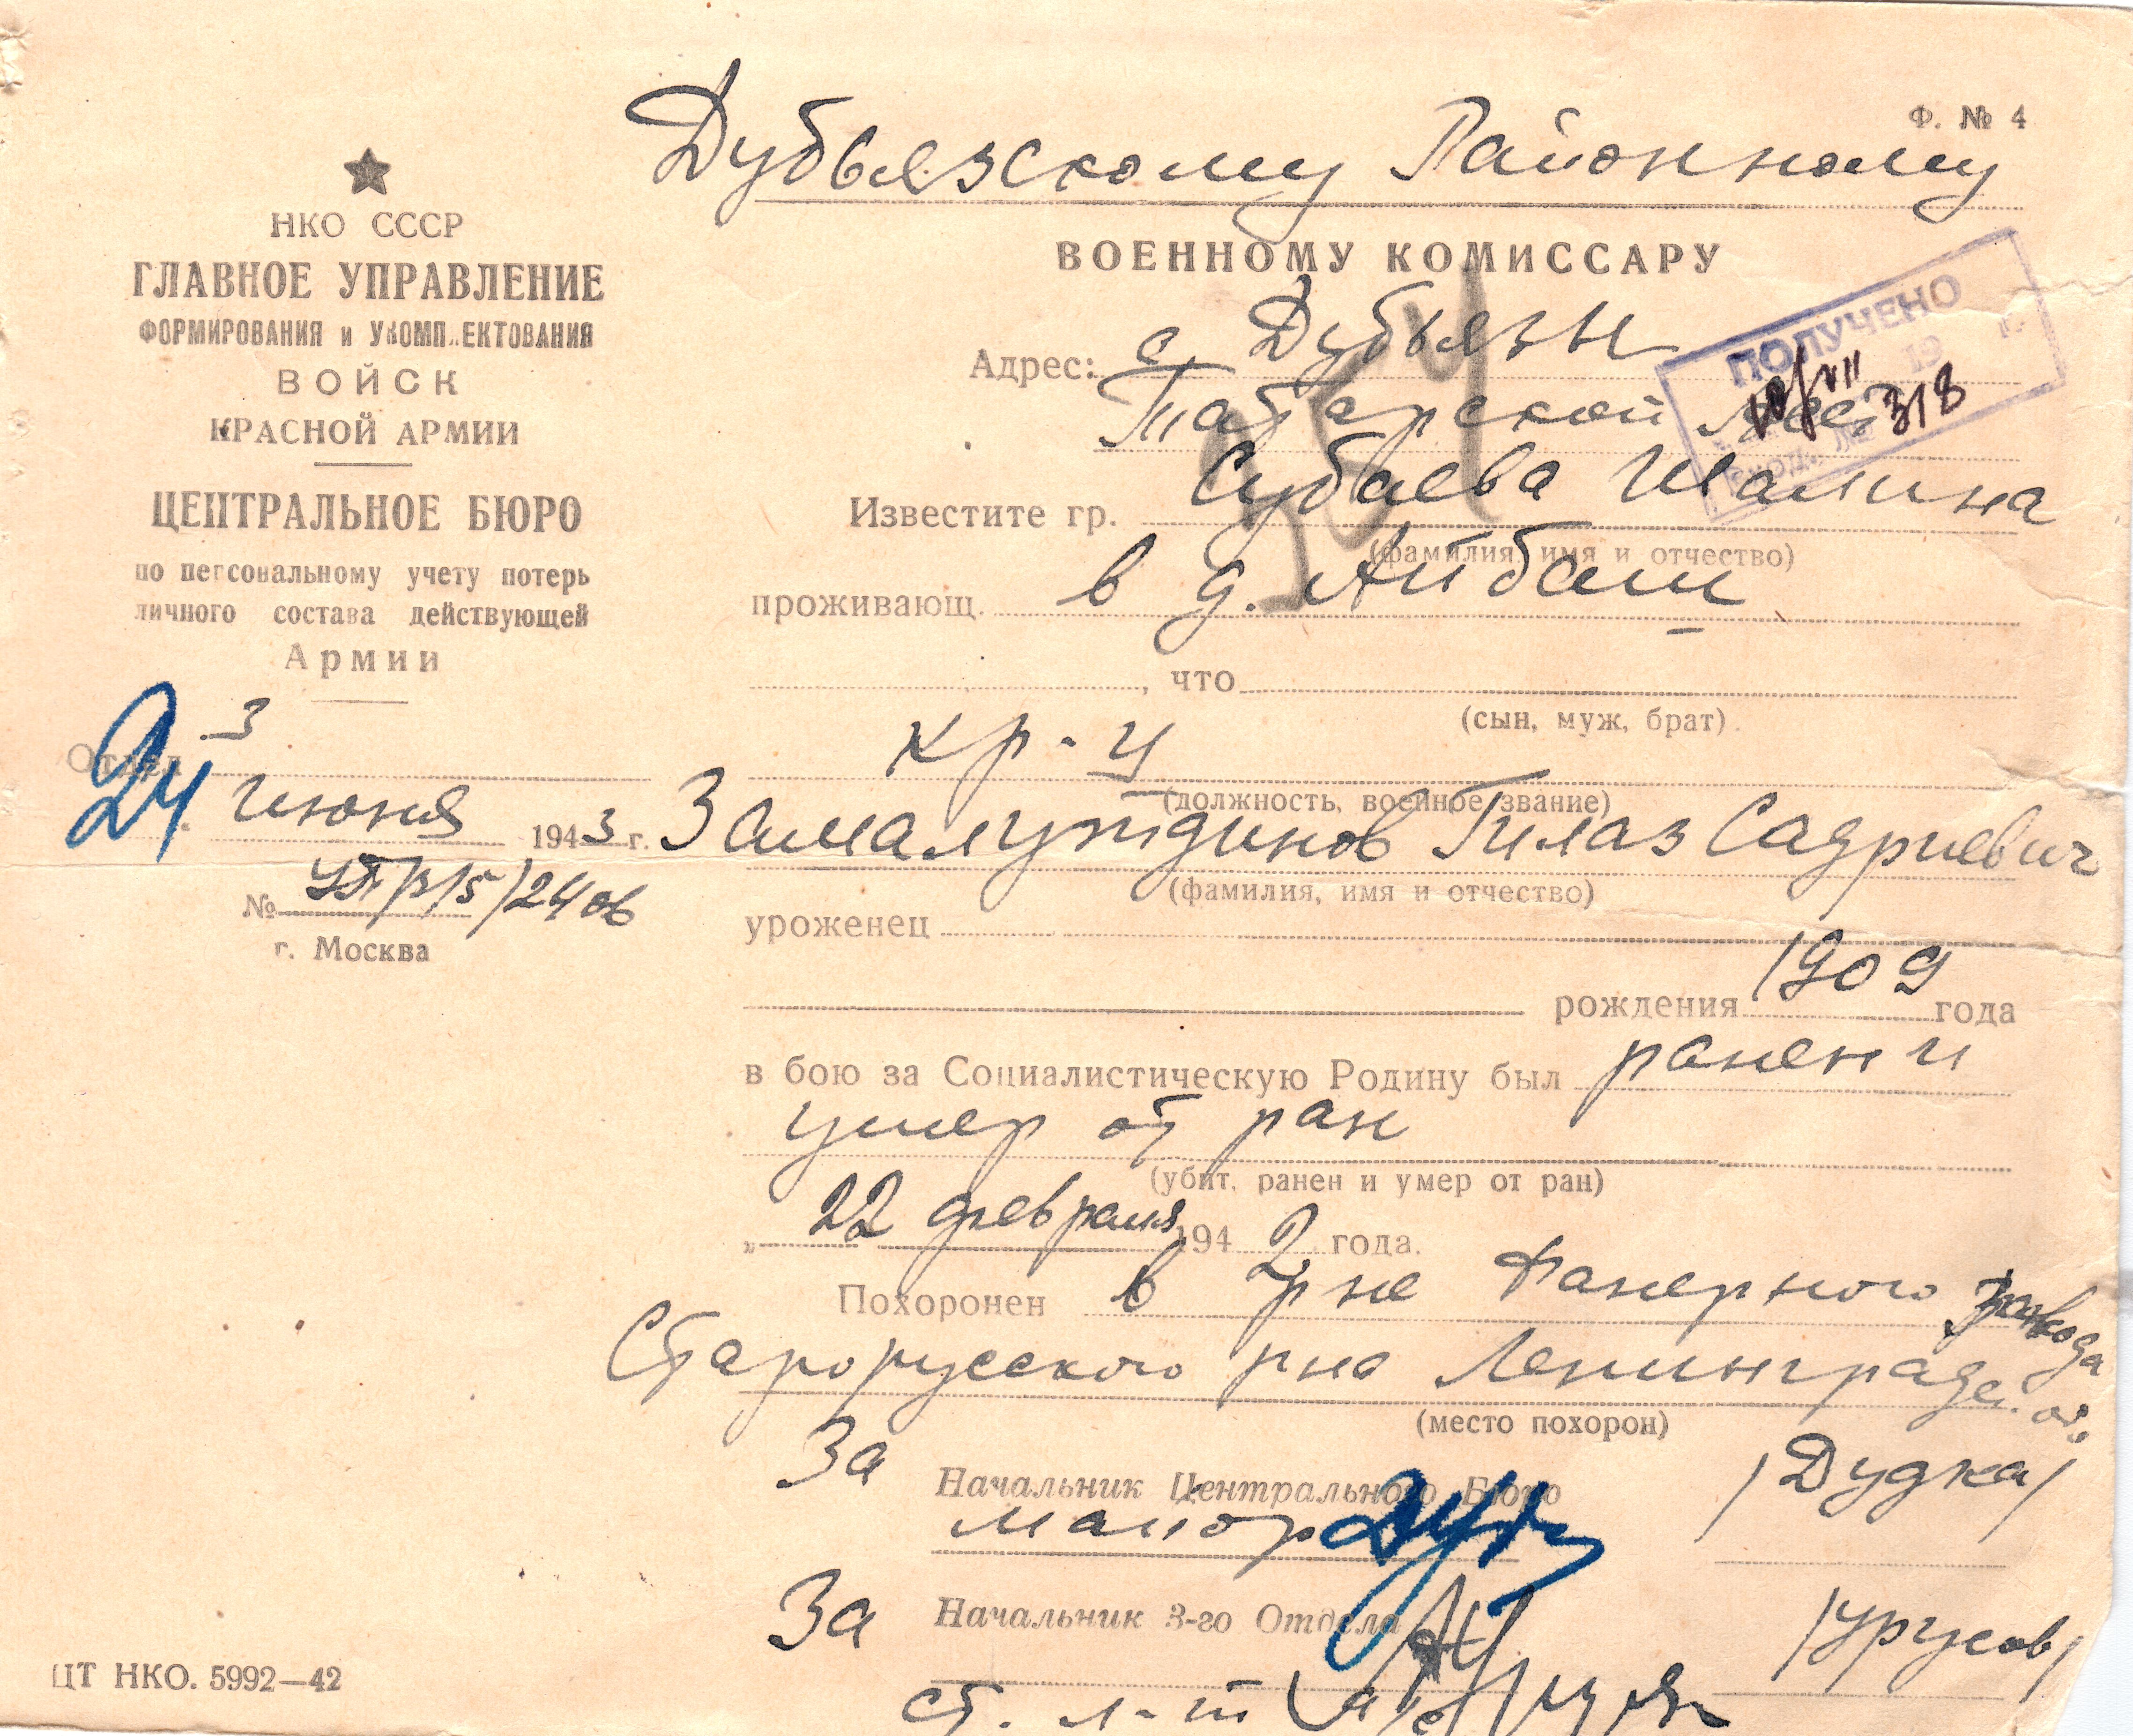 Ф. № 4
Дубьязскому Районному
ВОЕННОМУ КОМИССАРУ
Адрес: с. Дубьязы
Татарской
ПОЛУЧЕНО
19
318
Известите гр. Субаева Шамина
(фамилия, имя и отчество)
проживающ. в д. Айбаш
, что
(сын, муж, брат)
кр-ц
(должность, военное звание)
Замалутдинов Гилаз Садриевич
(фамилия, имя и отчество)
уроженец
рождения 1909 года
в бою за Социалистическую Родину был ранен и
умер от ран
(убит, ранен и умер от ран)
„ 22 февраля 1942 года.
Похоронен в рне Фанерного завода
Старорусского рна Ленинградс. об.
(место похорон)
За Начальник Центрального Бюро
майор /Дудка/
За Начальник 3-го Отдела
ст. л-т /Урусов/
НКО СССР
ГЛАВНОЕ УПРАВЛЕНИЕ
ФОРМИРОВАНИЯ и УКОМПЛЕКТОВАНИЯ
ВОЙСК
КРАСНОЙ АРМИИ
ЦЕНТРАЛЬНОЕ БЮРО
по персональному учету потерь
личного состава действующей
Армии
Отдел 3
24 июня 1943 г.
№ /2406
г. Москва
ЦТ НКО. 5992—42